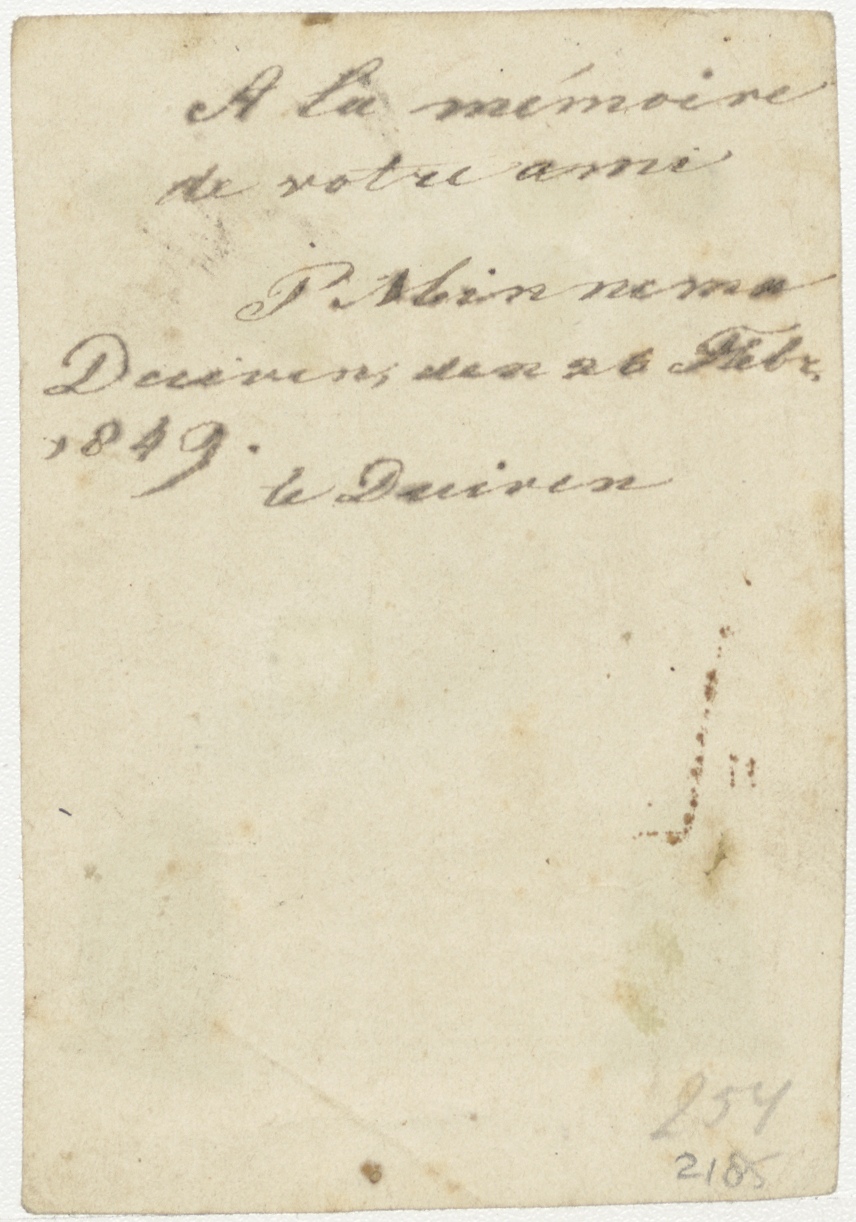 A la mémoire
de votre ami
P. Abinnema
Duiven, den 26 Febr.
1849.
te Duiven
254
2185